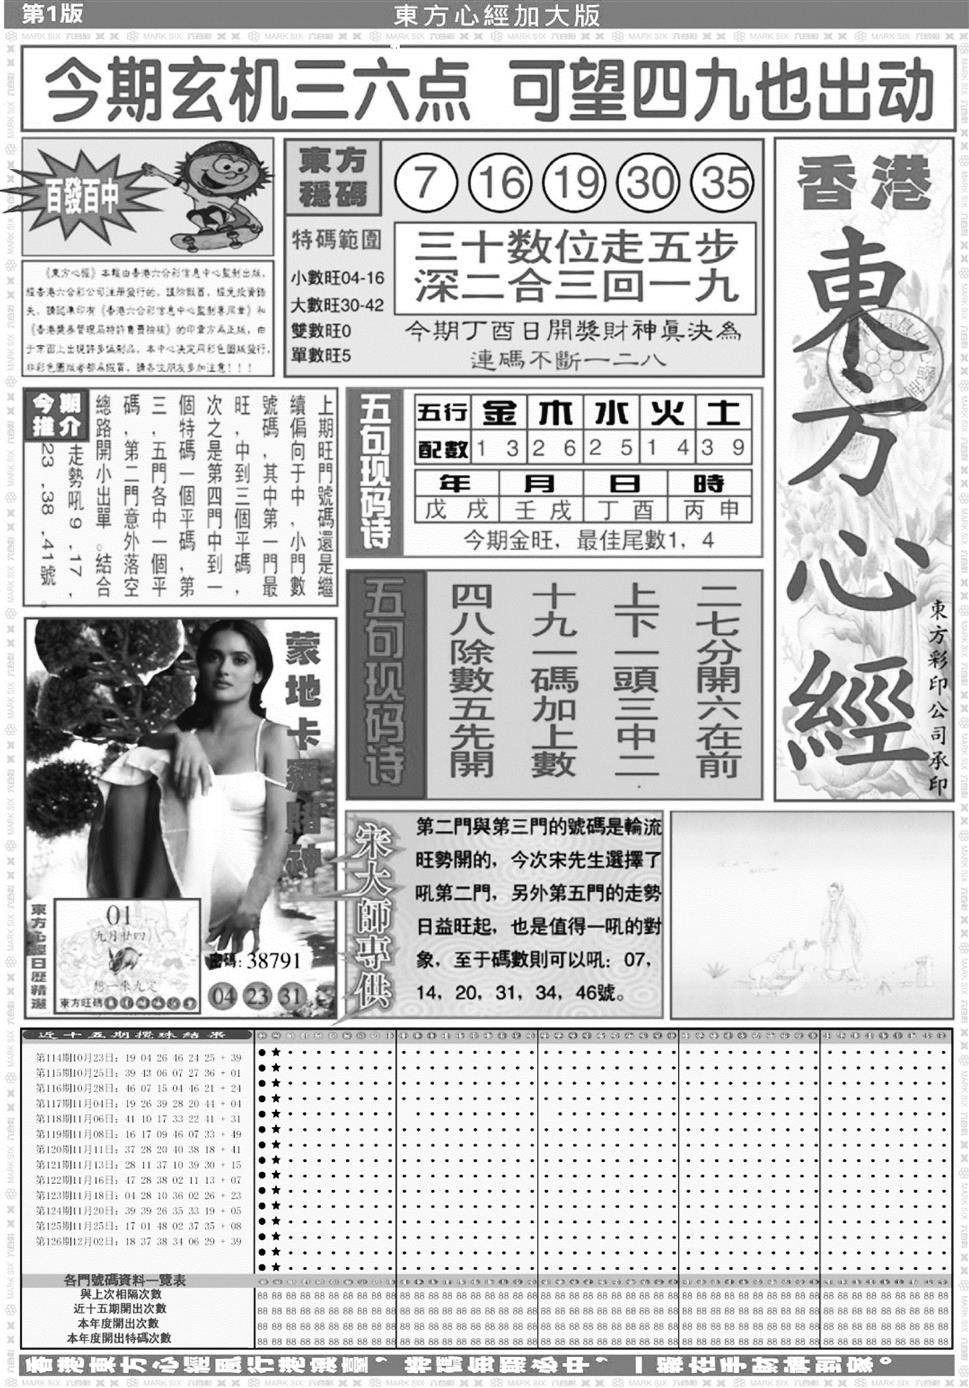 第1版
東方心經加大版
今期玄机三六点 可望四九也出动
百發百中
東方
穩碼
7 16 19 30 35
特碼範圍
小數旺04-16
大數旺30-42
雙數旺0
單數旺5
三十数位走五步
深二合三回一九
今期丁酉日開獎財神真決為
連碼不斷一二八
香港
東方心經
東方彩印公司承印
《東方心經》本報由香港六合彩信息中心監制出版,
經香港六合彩公司注册發行的,
《香港獎券管理局特許售賣檢核》的印章方為正版,由
于市面上出現許多偽制品,本中心決定用彩色圖版發行,
非彩色圖版者都為假貨,請各位朋友多加注意!!!
今期
推介
上期旺門號碼還是繼
續偏向于中,小門數
號碼,其中第一門最
旺,中到三個平碼,
次之是第四門中到一
個特碼一個平碼,第
三,五門各中一個平
碼,第二門意外落空
總路開小出單。結合
走勢吼9,17,
23,38,41號。
五句现码诗
五行 金 木 水 火 土
配數 1 3 2 6 2 5 1 4 3 9
年 月 日 時
戊戌 壬戌 丁酉 丙申
今期金旺,最佳尾數1,4
五句现码诗
二七分開六在前
上下一頭三中二
十九一碼加上數
四八除數五先開
蒙地卡羅賭神
東方心經日歷精選
01
九月廿四
東方旺碼
密碼:38791
04 23 31
宋大師專供
第二門與第三門的號碼是輪流
旺勢開的,今次宋先生選擇了
吼第二門,另外第五門的走勢
日益旺起,也是值得一吼的對
象,至于碼數則可以吼:07,
14,20,31,34,46號。
近十五期攪珠結果
第114期10月23日:19 04 26 46 24 25 + 39
第115期10月25日:39 43 06 07 27 36 + 01
第116期10月28日:46 07 15 04 46 21 + 24
第117期11月04日:19 26 39 28 20 44 + 04
第118期11月06日:41 10 17 33 22 41 + 31
第119期11月08日:16 17 09 46 07 33 + 49
第120期11月11日:37 28 20 40 38 18 + 41
第121期11月13日:28 11 37 10 39 30 + 15
第122期11月16日:47 28 38 02 11 13 + 07
第123期11月18日:04 28 10 36 02 26 + 23
第124期11月20日:39 39 26 35 33 19 + 05
第125期11月25日:17 01 48 02 37 35 + 08
第126期12月02日:18 37 38 34 06 29 + 39
各門號碼資料一覽表
與上次相隔次數
近十五期開出次數
本年度開出次數
本年度開出特碼次數
香港東方心經風行港澳臺,特碼每期必中,一版在手財神到家。